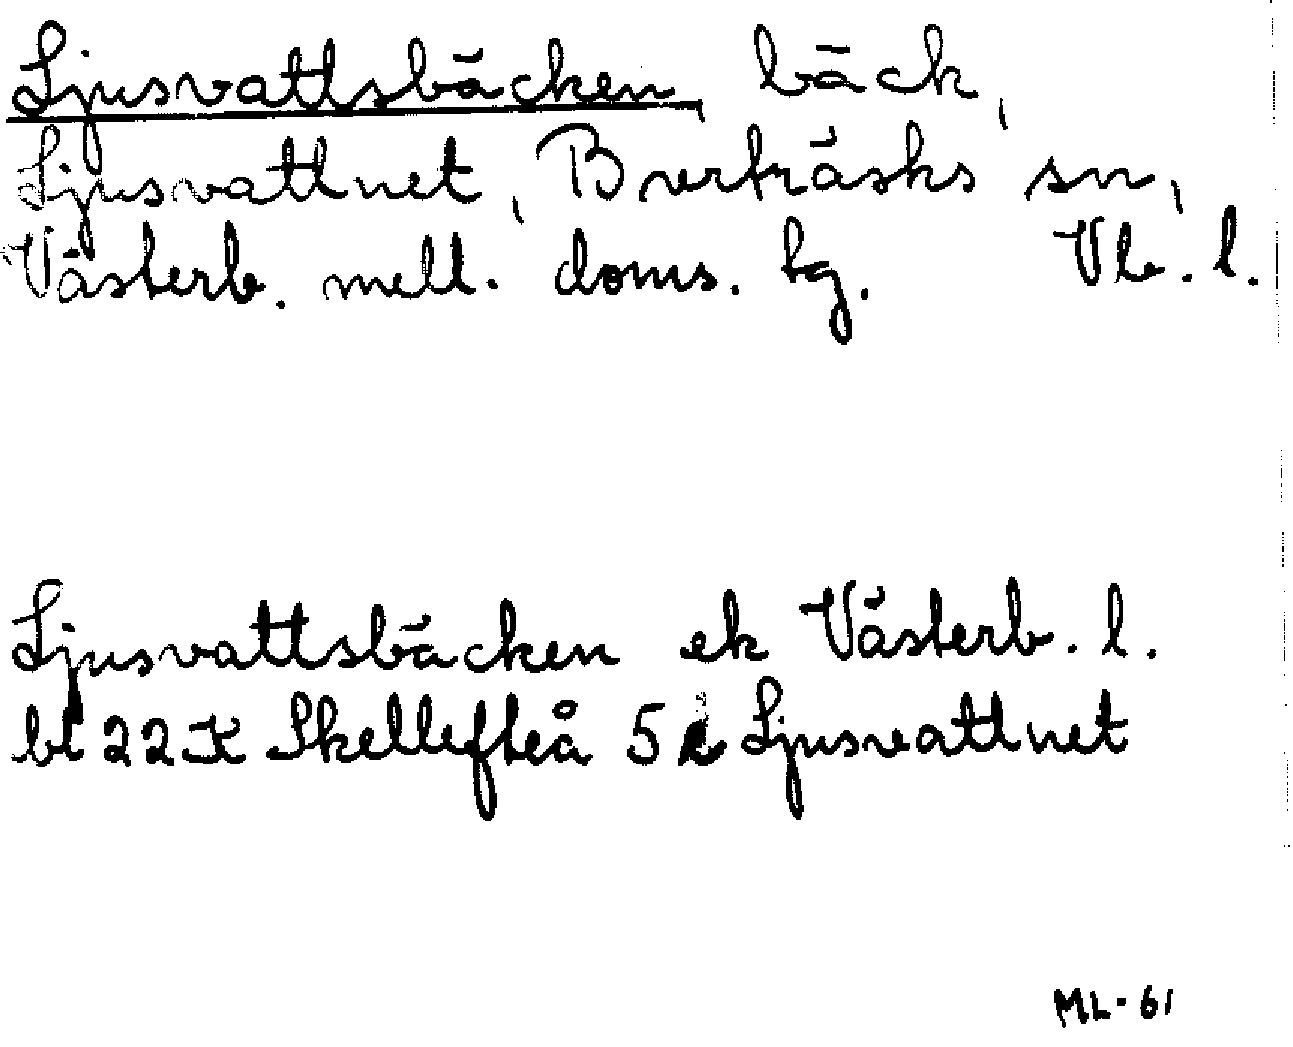 Ljusvattsbäcken, bäck,
Ljusvattnet, Burträsks sn,
Västerb. mell. doms. tg. Vb. l.
Ljusvattsbäcken ek Västerb. l.
bl 22 K Skellefteå 5 c Ljusvattnet
ML-61